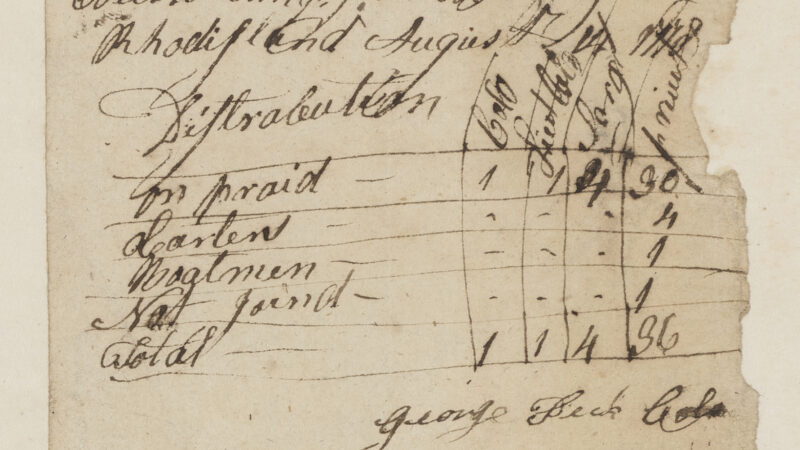 Rhodiſland August 14 1778
Diſtrabution Colo Lieut Colo Sarg
on praid – 1 1 4 30
- - - 4
Boatmen – - - - 1
Not joind – - - - 1
Total – 1 1 4 36
george Peck Colo